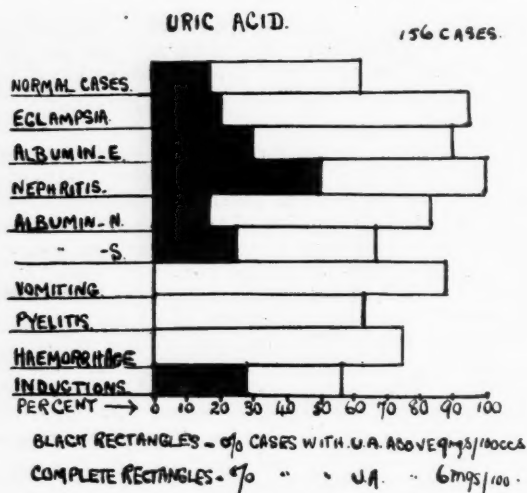 URIC ACID.
156 CASES.
NORMAL CASES.
ECLAMPSIA.
ALBUMIN-E.
NEPHRITIS.
ALBUMIN-N.
" -S.
VOMITING.
PYELITIS.
HAEMORRHAGE
INDUCTIONS
PERCENT → 0 10 20 30 40 50 60 70 80 90 100
BLACK RECTANGLES - % CASES WITH U.A. ABOVE 9mgs/100CCS
COMPLETE RECTANGLES - % " " U.A. " 6mgs/100.